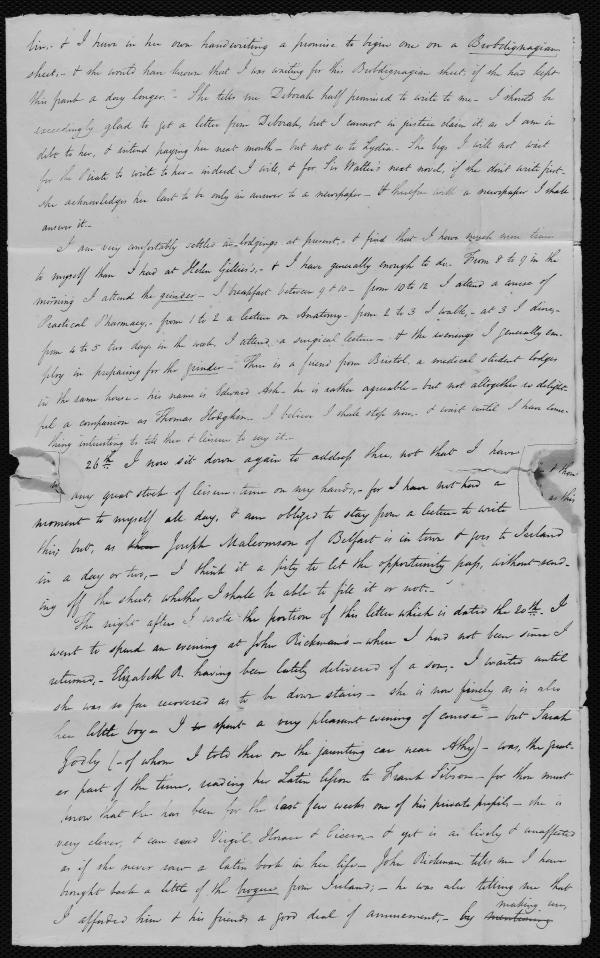 & I have in her own handwriting a promise to begin one on a Brobdignagian
sheet,- & she would have known that I was waiting for this Brobdignagian sheet, if she had kept
this frank a day longer.- She tells me Deborah half promised to write to me- I should be
exceedingly glad to get a letter from Deborah, but I cannot in justice claim it, as I am in
debt to her, & intend paying her next month- but not so to Lydia. She says I will not wait
for the Pirate to write to her- indeed I will, & for Sir Walter's next novel, if she don't write first-
she acknowledges her last to be only in answer to a newspaper- & therefore with a newspaper I shall
answer it.-
I am very comfortably settled in lodgings at present,- & find that I have much more time
to myself than I had at Helen Gillies's,- & I have generally enough to do. From 8 to 9 in the
morning I attend the grinder- I breakfast between 9 & 10- from 10 to 12 I attend a course of
Practical Pharmacy,- from 1 to 2 a lecture on Anatomy- from 2 to 3 I walk,- at 3 I dine,-
from 4 to 5 two days in the week, I attend a surgical lecture- & the evenings I generally em-
ploy in preparing for the grinder- There is a friend from Bristol, a medical student lodges
in the same house- his name is Edward Ash- he is rather agreeable- but not altogether so delight-
ful a companion as Thomas Hodgkin- I believe I shall stop now- & wait until I have some-
thing interesting to tell thee & leisure to say it.-
26th I now sit down again to address thee, not that I have
any great stock of leisure time on my hands,- for I have not had a
moment to myself all day, & am obliged to stay from a lecture to write
this; but, as Joseph Malcomson of Belfast is in town & goes to Ireland
in a day or two,- I think it a pity to let the opportunity pass, without send-
ing off the sheet, whether I shall be able to fill it or not.-
The night after I wrote the portion of this letter which is dated the 20th. I
went to spend an evening at John Rickman's- where I had not been since I
returned,- Elizabeth R. having been lately delivered of a son,- I waited until
she was so far recovered as to be down stairs- she is now finely as is also
her little boy- I spent a very pleasant evening of course- but Sarah
Godly (- of whom I told thee on the jaunting car near Athy)- was, the great-
er part of the time, reading her Latin lesson to Frank Sibson- for thou must
know that she has been for the last few weeks one of his private pupils- she is
very clever, & can read Virgil, Horace & Cicero,- & yet is as lively & unaffected
as if she never saw a latin book in her life- John Rickman tells me I have
brought back a little of the brogue from Ireland;- he was also telling me that
I afforded him & his friends a good deal of amusement,- by mentioning making use,